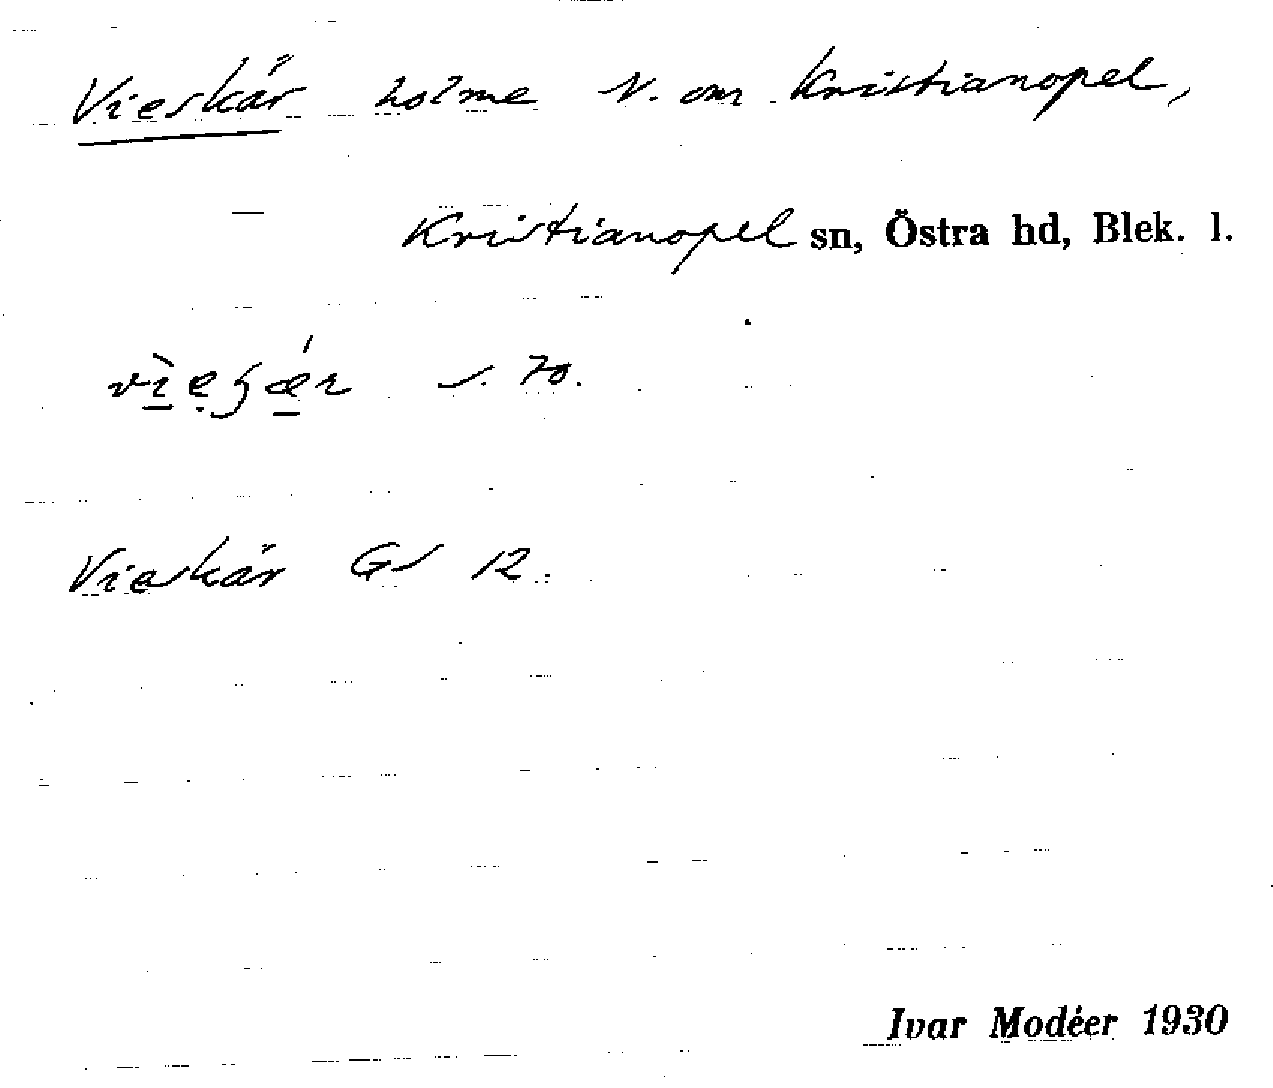 Vieskär holme N. om Kristianopel,
Kristianopel sn, Östra hd, Blek. l.
s. 70.
Vieskär GS 12.
Ivar Modéer 1930